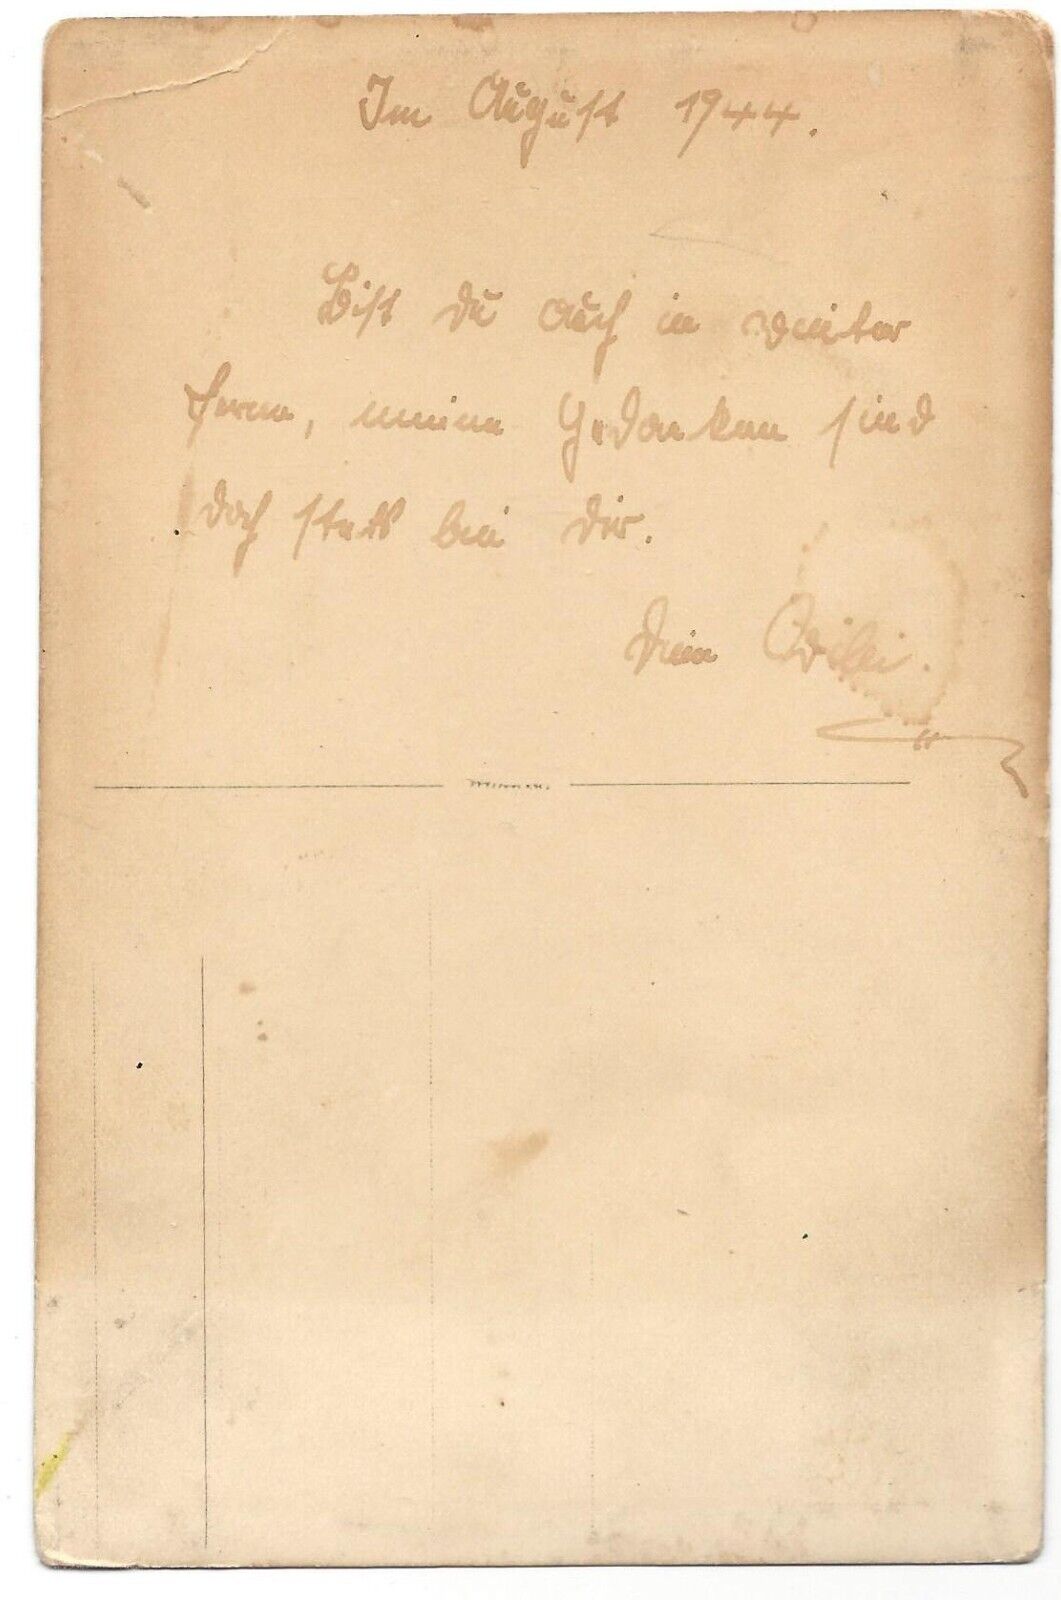 Im August 1944.
Bist du auch in weiter
ferne, meine Gedanken sind
doch stets bei dir.
Dein